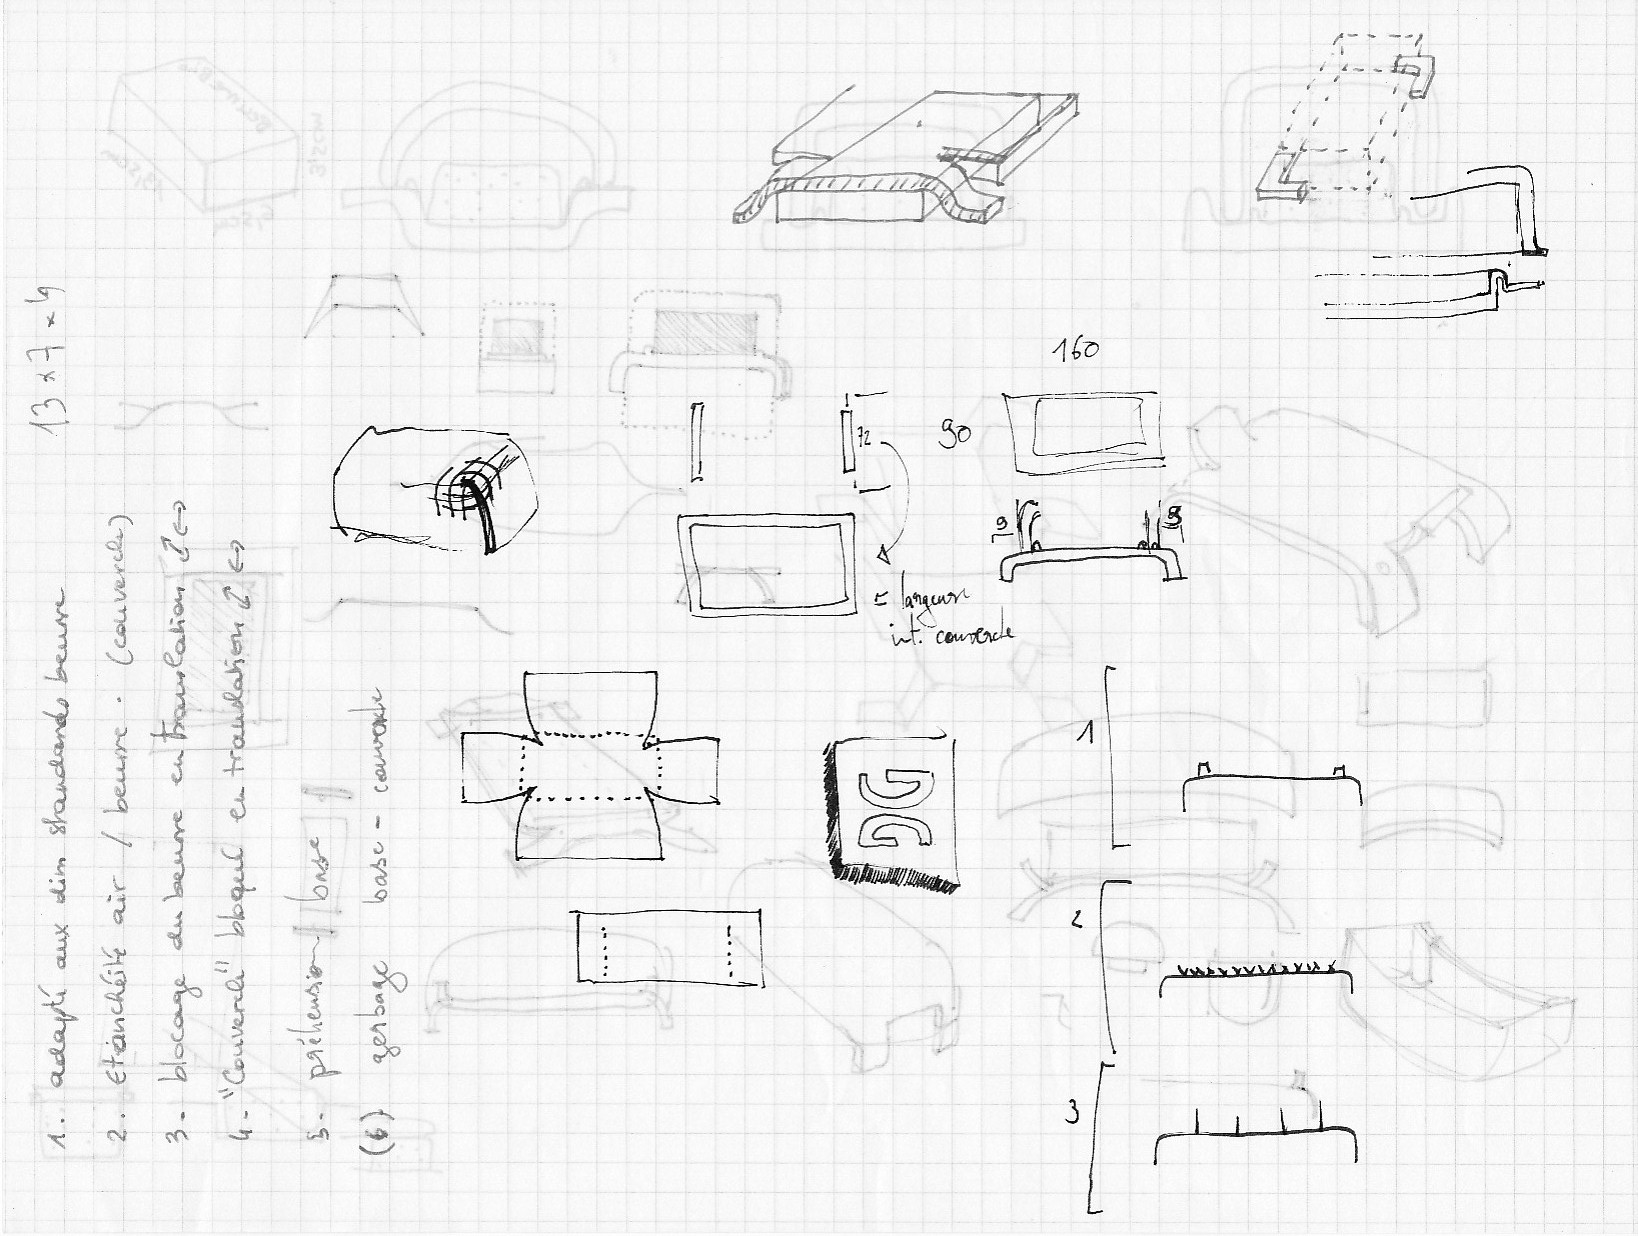 13 x 7 x 4
1. adapté aux dim standards beurre
2. étanchéité air / beurre. (couvercle)
3- blocage du beurre en translation ↕ ↔
4- "Couvercle" bloqué en translation ↕ ↔
5- préhension base
(6) gerbage base - couvercle
160
90
72
9
9
= largeur
int. couvercle
DG
1
2
3